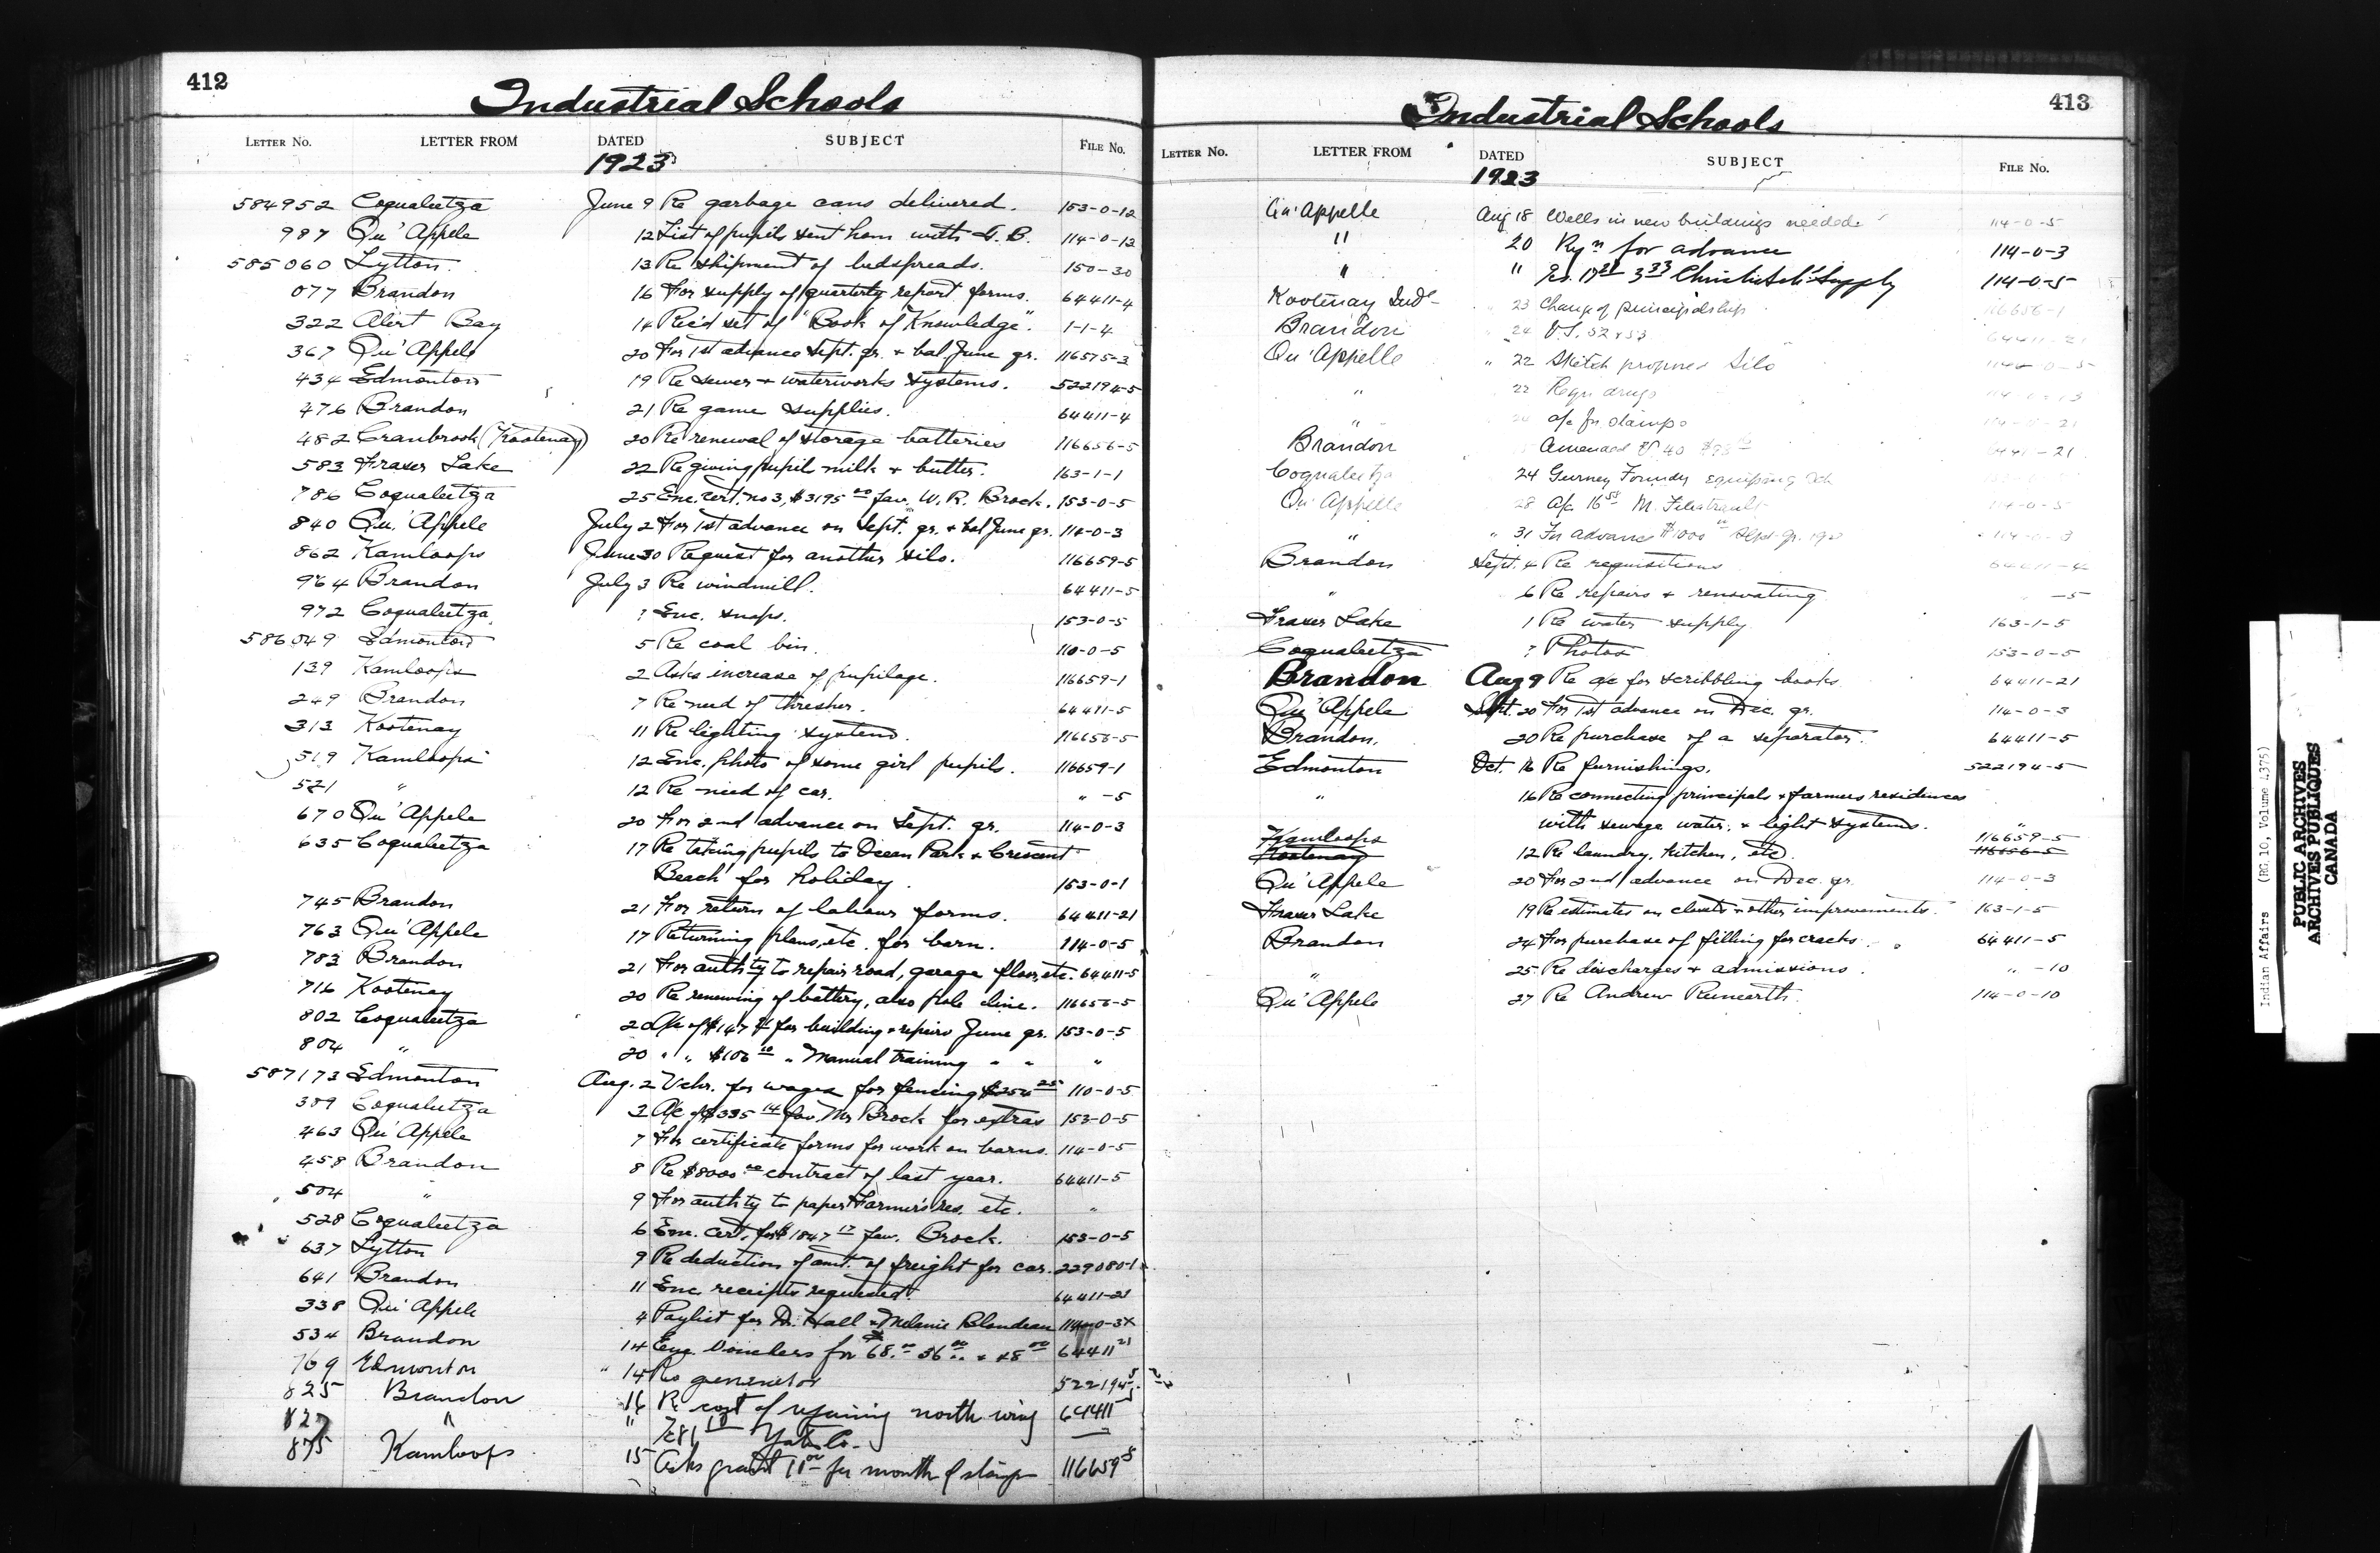 412
Industrial Schools
LETTER NO. LETTER FROM DATED SUBJECT FILE NO.
1923
584952 Coqualeetza June 9 Re garbage cans delivered. 153-0-12
987 Qu'Appele 12 List of pupils sent hom with T. B. 114-0-12
585060 Lytton. 13 Re shipment of bedspreads. 150-30
077 Brandon 16 For supply of quarterly report forms. 64411-4
322 Alert Bay 14 Rec'd set of "Book of Knowledge". 1-1-4
367 Qu'Appele 20 For 1st advance Sept. qr. + bal June qr. 116575-3
434 Edmonton 19 Re sewer + waterworks systems. 522194-5
476 Brandon 21 Re game supplies. 64411-4
482 Cranbrook (Kootenay) 20 Re renewal of storage batteries 116656-5
583 Fraser Lake 22 Re giving pupil milk + butter. 163-1-1
786 Coqualeetza 25 Enc. cert. no 3, $3195 00 fav. W. R. Brock. 153-0-5
840 Qu'Appele July 2 For 1st advance on Sept. qr. + bal June qr. 114-0-3
862 Kamloops June 30 Request for another silo. 116659-5
964 Brandon July 3 Re windmill. 64411-5
972 Coqualeetza ? Enc. snaps. 153-0-5
586049 Edmonton 5 Re coal bin. 110-0-5
139 Kamloops 2 Asks increase of pupilage. 116659-1
249 Brandon 7 Re need of thresher. 64411-5
313 Kootenay 11 Re lighting systems. 116656-5
519 Kamloops 12 Enc. photo of some girl pupils. 116659-1
521 " 12 Re need of car. " -5
670 Qu'Appele 20 For 2nd advance on Sept. qr. 114-0-3
635 Coqualeetza 17 Re taking pupils to Ocean Park + Crescent
Beach for holiday. 153-0-1
745 Brandon 21 For return of labour forms. 64411-21
763 Qu'Appele 17 Returning plans, etc. for barn. 114-0-5
783 Brandon 21 For auth'ty to repair road, garage floor, etc. 64411-5
716 Kootenay 20 Re renewing of battery, also pole line. 116656-5
802 Coqualeetza 20 A/c of $147 for building + repairs June qr. 153-0-5
804 " 20 " " $106 10 " Manual training " " "
587173 Edmonton Aug. 2 Vchr. for wages for fencing $254 25 110-0-5
389 Coqualeetza 3 A/c of $335 14 fav. Mr Brock for extras 153-0-5
463 Qu'Appele 7 For certificate forms for work on barns. 114-0-5
458 Brandon 8 Re $8000 00 contract of last year. 64411-5
504 " 9 For auth'ty to paper Farmer's res. etc. "
528 Coqualeetza 6 Enc. cert. for $1847 17 fav. Brock. 153-0-5
637 Lytton 9 Re deduction of amt. of freight for car. 229080-1
641 Brandon 11 Enc. receipts requested. 64411-21
338 Qu'Appele 4 Paylist for Dr. Hall + Melanie Blondeau
534 Brandon 14 Enc. Vouchers for $68. 00 56 00 + 48 00 64411 21
769 Edmonton " 14 Re generator 522194 5
825 Brandon 16 Re cost of repairing north wing 64411 5
827 " "
875 Kamloops 15 Asks grant 11 00 for month of stamps 116659 5
413
Industrial Schools
LETTER NO. LETTER FROM DATED SUBJECT FILE NO.
1923
Qu'Appelle Aug 18 Wells in new buildings needed 114-0-5
" 20 Rqn for advance 114-0-3
" " 114-0-5
Kootenay Ind'l " 23 Change of principalship 116656-1
Brandon " 24 V.S. 52 + 53 64411-21
Qu'Appelle " 22 Sketch proposed Silo
" 22 Requ drugs
" a/c for stamps
Brandon Amended V. 40
Coqualeetza 24 Gurney Foundry equipping
Qu'Appelle 28 A/c 16 58 M.
" " 31 For advance $1000 00 Sept qr.
Brandon Sept. 4 Re requisitions 64411-4
" 6 Re repairs + renovating " -5
Fraser Lake 1 Re water supply 163-1-5
Coqualeetza ? Photos 153-0-5
Brandon Aug 9 Re a/c for scribbling books 64411-21
Qu'Appele Sept. 20 For 1st advance on Dec. qr. 114-0-3
Brandon. 20 Re purchase of a separator. 64411-5
Edmonton Oct. 16 Re furnishings. 522194-5
" 16 Re connecting principals + farmers residences
with sewage, water, + light systems. "
Kamloops 116659-5
Kootenay 12 Re laundry, kitchen, etc. 116656-5
Qu'Appele 20 For 2nd advance on Dec. qr. 114-0-3
Fraser Lake 19 Re estimates on closets + other improvements. 163-1-5
Brandon 24 For purchase of filling for cracks. 64411-5
" 25 Re discharges + admissions. " -10
Qu'Appele 27 Re Andrew 114-0-10
Indian Affairs (RG 10, Volume 4375)
PUBLIC ARCHIVES
ARCHIVES PUBLIQUES
CANADA